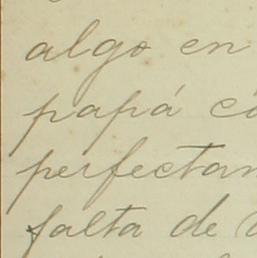 algo en
papá co
perfectam
falta de